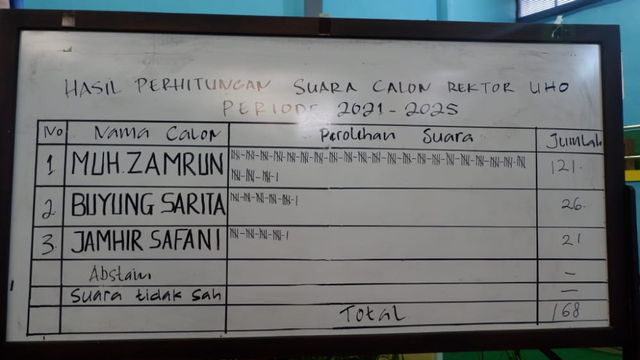 HASIL PERHITUNGAN SUARA CALON REKTOR UHO
PERIODE 2021-2025
No Nama Calon Perolehan Suara Jumlah
1 MUH. ZAMRUN 121
2 BUYUNG SARITA 26
3 JAMHIR SAFANI 21
Abstain -
Suara tidak sah -
Total 168